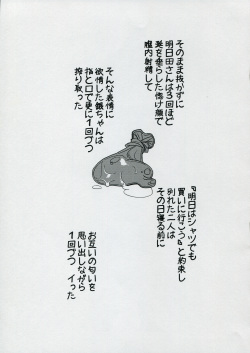 そのまま抜かずに
明日田さんは3回ほど
涎を垂らした情け顔で
膣内射精して
そんな表情に
欲情した銀ちゃんは
指と口で更に1回づつ
搾り取った
『明日はシャツでも
買いに行こう』と約束し
別れた二人は
その日寝る前に
お互いの匂いを
思い出しながら
1回づつ イった